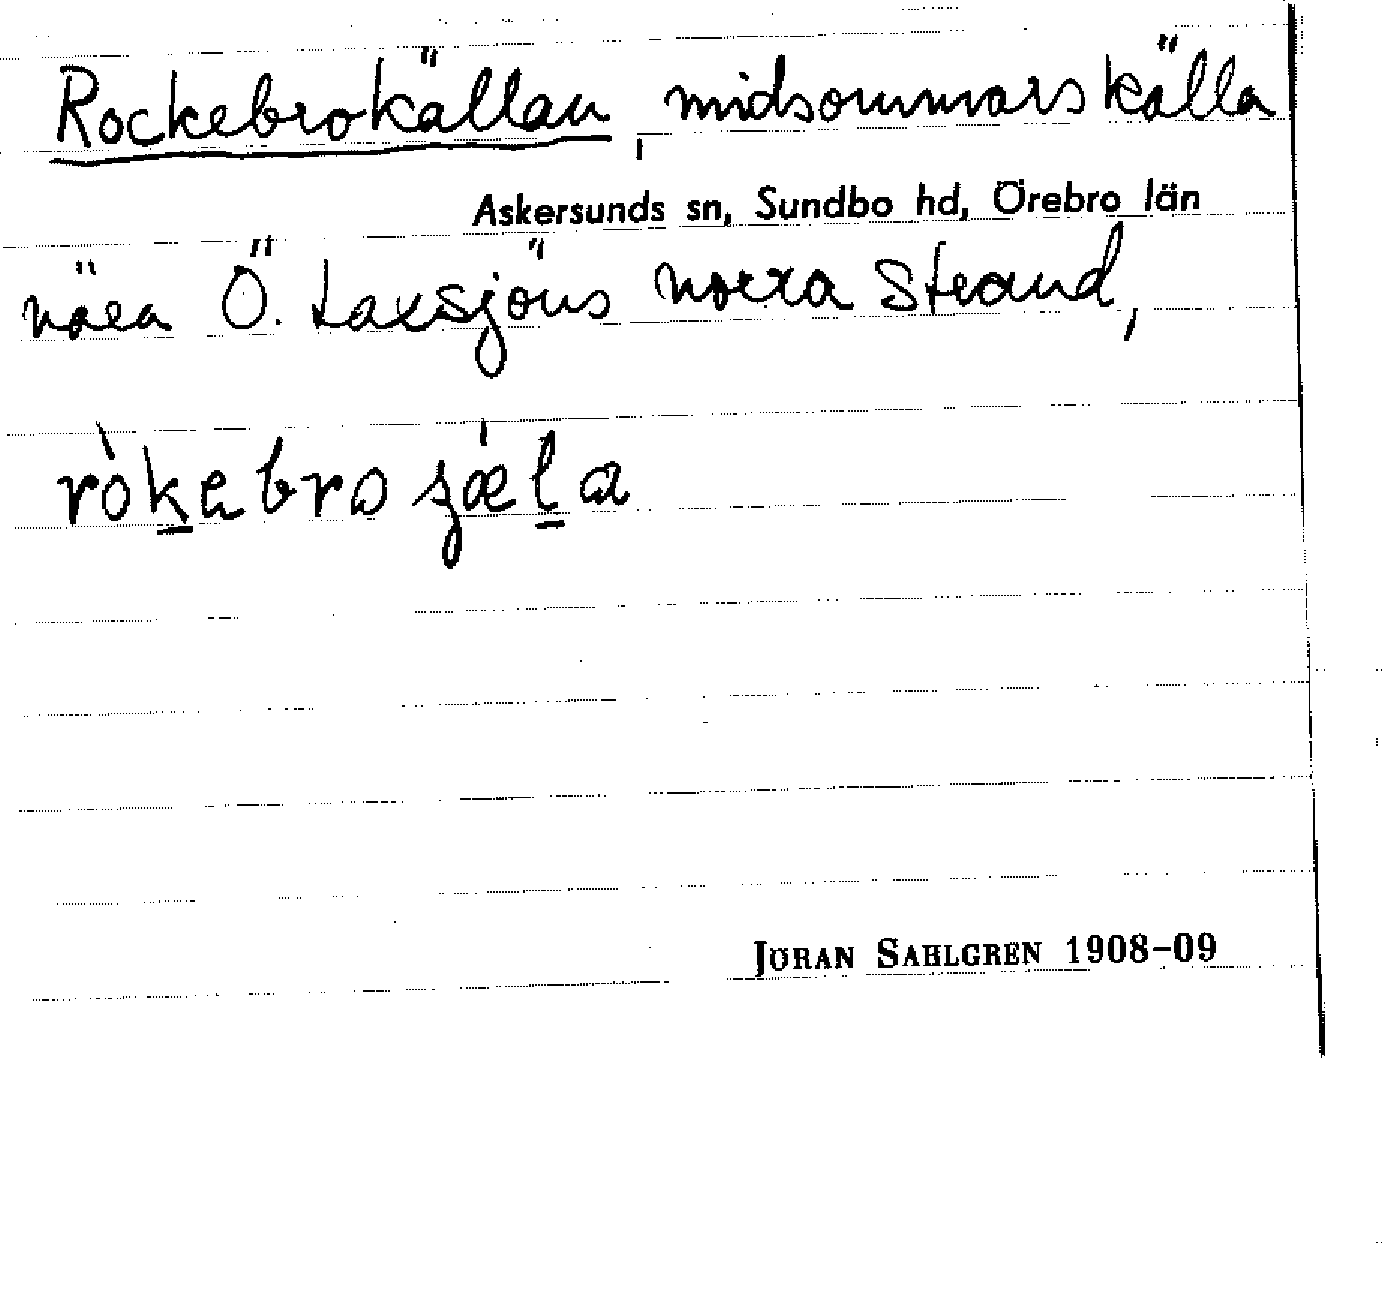 Rockebrokällan, midsommarskälla
Askersunds sn, Sundbo hd, Örebro län
nära Ö. Laxsjöns norra strand,
ròkebrosjæla
JÖRAN SAHLGREN 1908-09